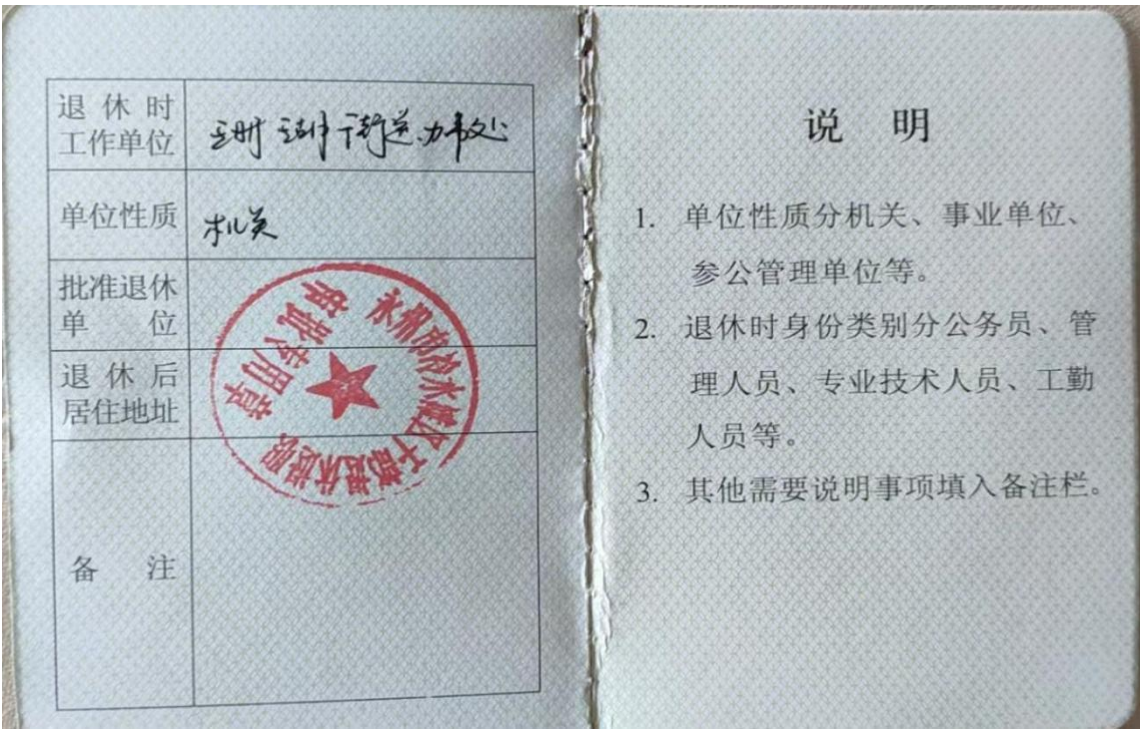 退休时
工作单位
珊瑚街道办事处
单位性质
机关
批准退休
单位
退休后
居住地址
永州市冷水滩区干部退休退职
审批专用章
备注
说 明
1. 单位性质分机关、事业单位、
参公管理单位等。
2. 退休时身份类别分公务员、管
理人员、专业技术人员、工勤
人员等。
3. 其他需要说明事项填入备注栏。